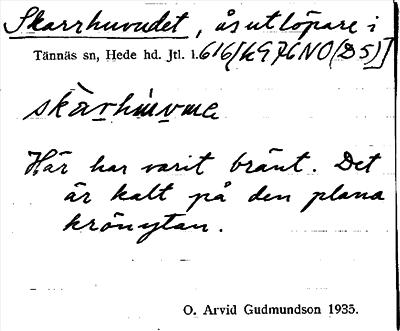 Skarrhuvudet, åsutlöpare i
Tännäs sn, Hede hd. Jtl. l. 616/k976NO(D5)]
skàr̲hu̇v̲ma
Här har varit bränt. Det
är kalt på den plana
krönytan.
O. Arvid Gudmundson 1935.